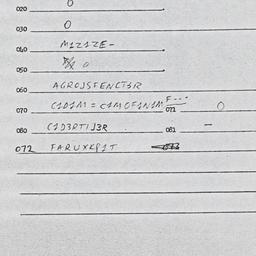 020 0
030 0
040 M1Z1ZE-
050
060 AGROJSFENCT3R
070 C1D1M = C1MOF1N1M F--- 071 0
080 C1D3RTIJ3R 081 -
072 FARUXKP1T